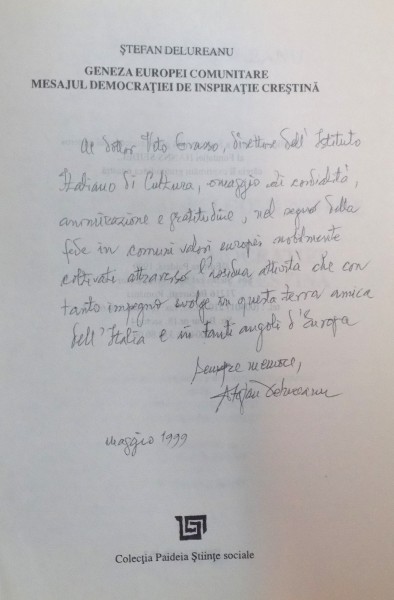 ȘTEFAN DELUREANU
GENEZA EUROPEI COMUNITARE
MESAJUL DEMOCRAȚIEI DE INSPIRAȚIE CREȘTINĂ
Al dottor Vito Grasso, direttore dell'Istituto
Italiano di Cultura, omaggio di cordialità,
ammirazione e gratitudine, nel segno della
fede in comuni valori europei nobilmente
coltivati attraverso l'assidua attività che con
tanto impegno svolge in questa terra amica
dell'Italia e in tanti angoli d'Europa
Sempre memore,
Ștefan Delureanu
maggio 1999
Colecția Paideia Științe sociale